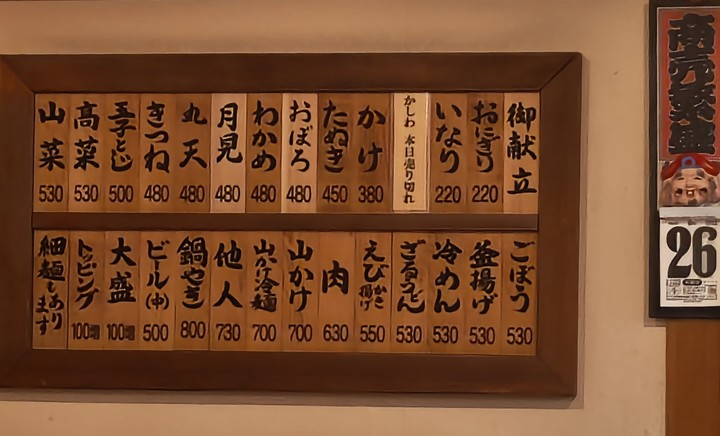 御献立
おにぎり 220
いなり 220
かしわ 本日売り切れ
かけ 380
たぬき 450
おぼろ 480
わかめ 480
月見 480
丸天 480
きつね 480
玉子とじ 500
高菜 530
山菜 530
ごぼう 530
釜揚げ 530
冷めん 530
ざるうどん 530
えびかき揚げ 550
肉 630
山かけ 700
山かけ冷麺 700
他人 730
鍋やき 800
ビール(中) 500
大盛 100増
トッピング 100増
細麺もあります
商売繁盛
26